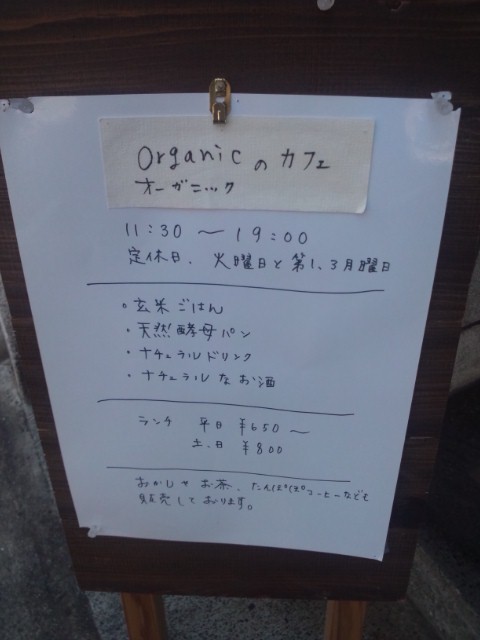 Organicのカフェ
オーガニック
11:30 〜 19:00
定休日. 火曜日と第1、3月曜日
・玄米ごはん
・天然酵母パン
・ナチュラルドリンク
・ナチュラルなお酒
ランチ 平日 ¥650〜
土.日 ¥800
おかしやお茶、たんぽぽコーヒーなども
販売しております。